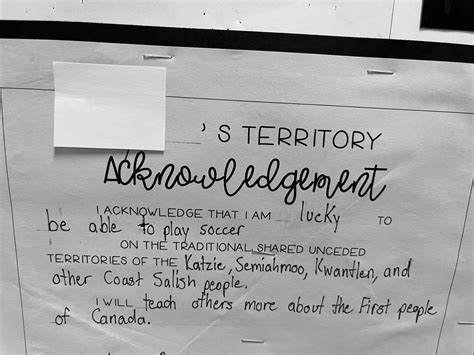 's TERRITORY
Acknowledgement
I ACKNOWLEDGE THAT I AM lucky TO
be able to play soccer
ON THE TRADITIONAL SHARED UNCEDED
TERRITORIES OF THE Katzie, Semiahmoo, Kwantlen, and
other Coast Salish people.
I WILL teach others more about the First people
of Canada.